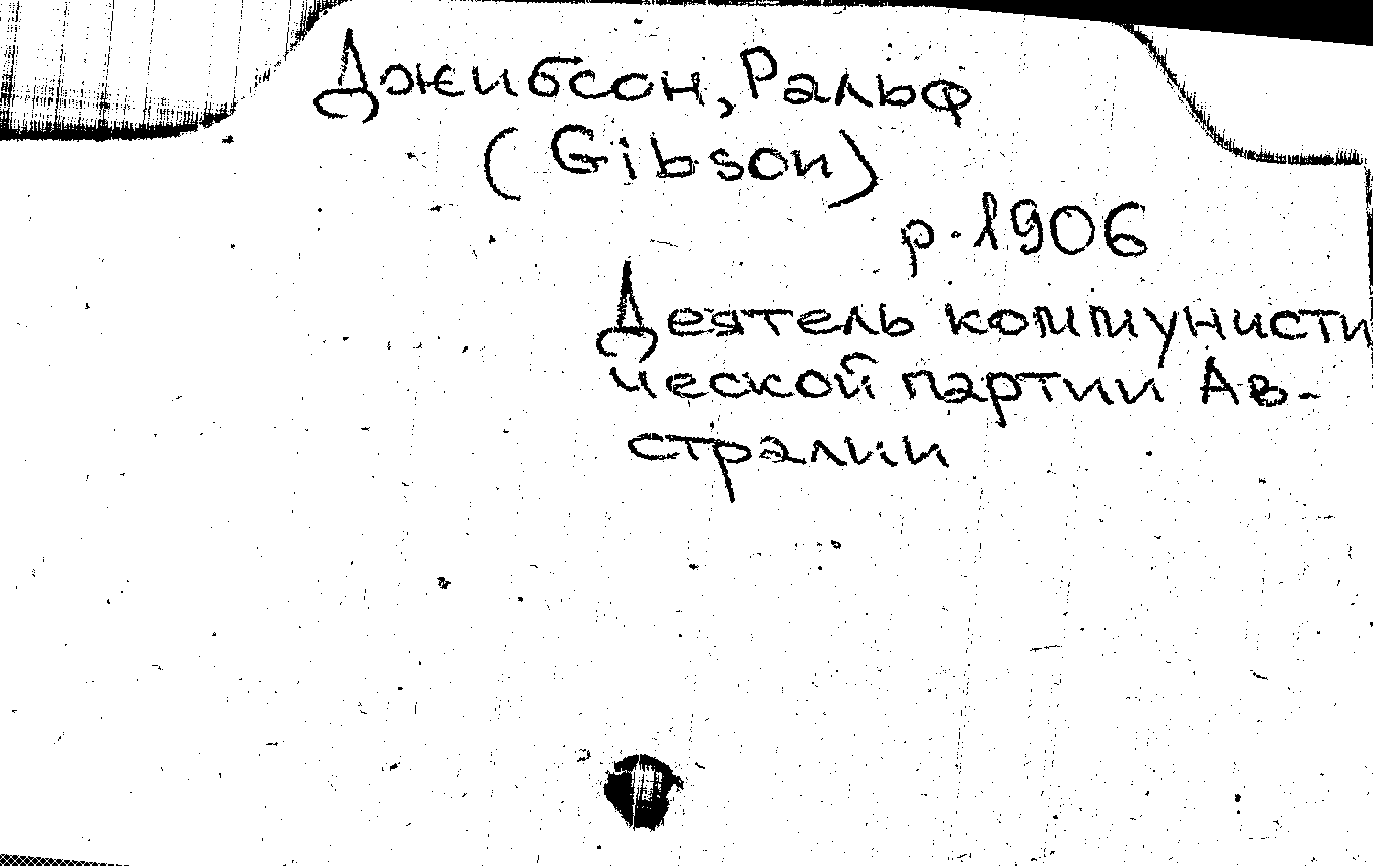 Джибсон, Ральф
(Gibson)
р. 1906
Деятель коммунисти
ческой партии Ав-
стралии